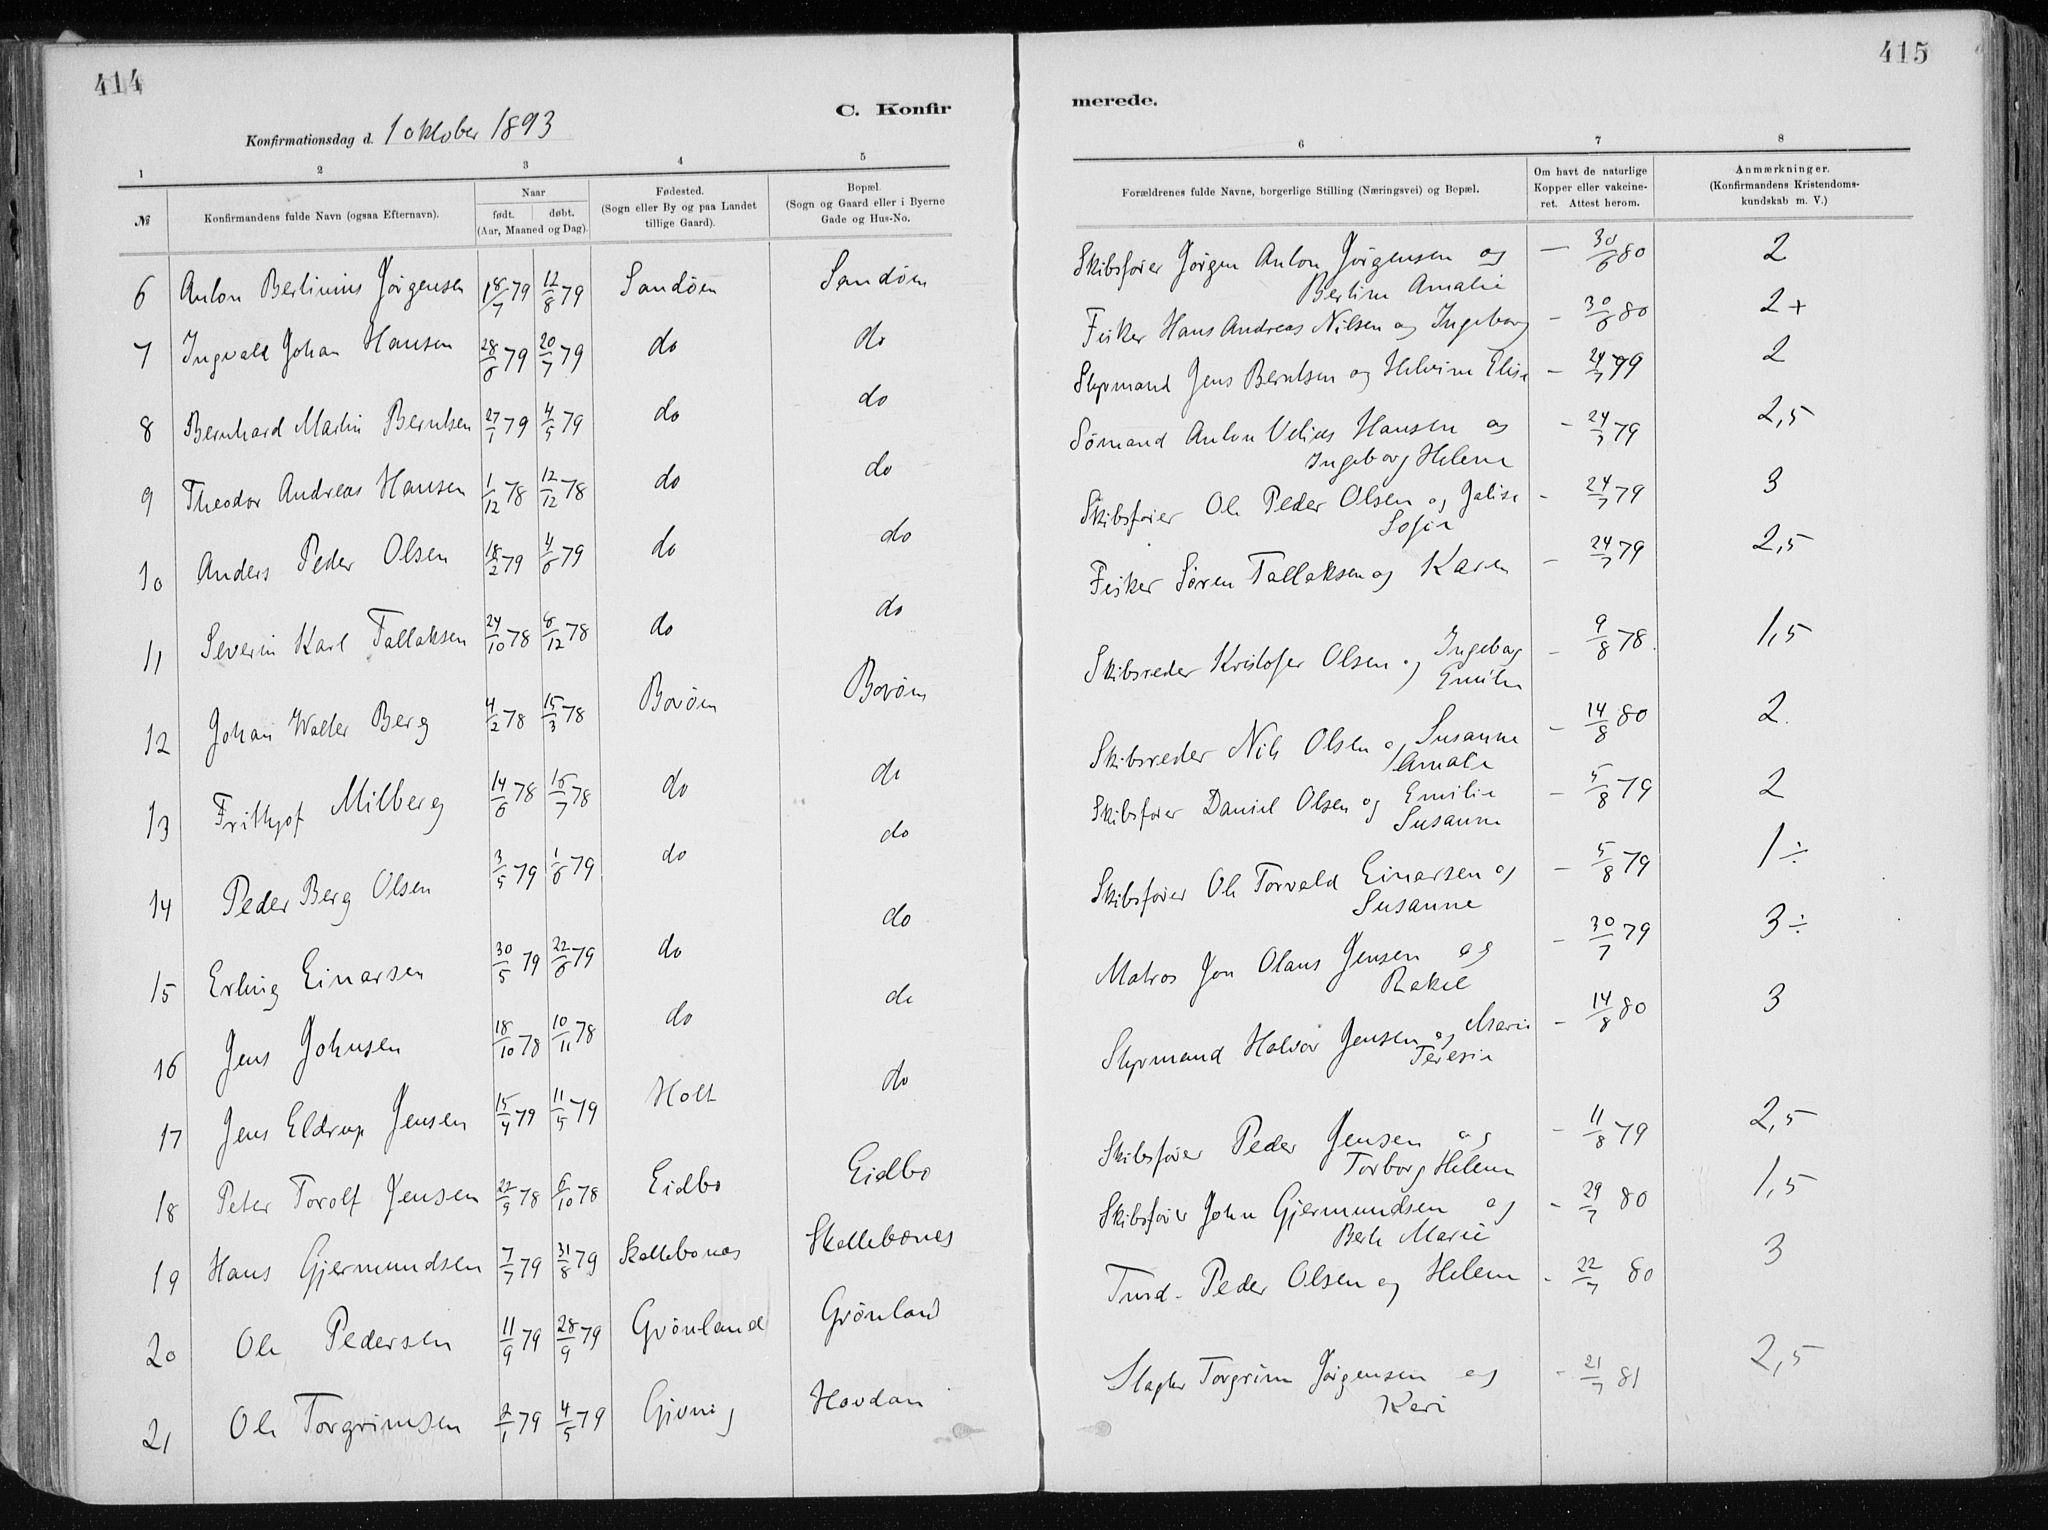 414
C. Konfir
Konfirmationsdag d. 1 oktober 1893
1 2 3 4 5
№ Konfirmandens fulde Navn (ogsaa Efternavn). Naar født. døbt. (Aar, Maaned og Dag). Fødested. (Sogn eller By og paa Landet tillige Gaard). Bopæl. (Sogn og Gaard eller i Byerne Gade og Hus-No.
6 Anton Bertinius Jørgensen 18/7 79 12/8 79 Sandøen Sandøen
7 Ingvald Johan Hansen 28/6 79 20/7 79 do do
8 Bernhard Martin Berntsen 27/1 79 4/5 79 do do
9 Theodor Andreas Hansen 1/12 78 12/12 78 do do
10 Anders Peder Olsen 18/2 79 4/6 79 do do
11 Severin Karl Tallaksen 24/10 78 8/12 78 do do
12 Johan Walter Berg 4/2 78 15/3 78 Borøen Borøen
13 Frithjof Milberg 14/6 78 16/7 78 do do
14 Peder Berg Olsen 3/5 79 1/6 79 do do
15 Erling Einarsen 30/5 79 22/6 79 do do
16 Jens Johnsen 18/10 78 10/11 78 do do
17 Jens Eldrup Jensen 15/4 79 11/5 79 Holt do
18 Peter Torolf Jensen 22/9 78 6/10 78 Eidbo Eidbo
19 Hans Gjermundsen 7/7 79 31/8 79 Skellebones Skellebones
20 Ole Pedersen 11/9 79 28/9 79 Grønland Grønland
21 Ole Torgrimsen 2/1 79 4/5 79 Gjeving Hovdan
415
merede.
6 7 8
Forældrenes fulde Navne, borgerlige Stilling (Næringsvei) og Bopæl. Om havt de naturlige Kopper eller vakcineret. Attest herom. Anmærkninger. (Konfirmandens Kristendomskundskab m. V.)
Skibsfører Jørgen Anton Jørgensen og — 30/6 80 2
Bertine Amalie
Fisker Hans Andreas Nilsen og Ingeborg - 30/6 80 2+
Styrmand Jens Berntsen og Helvine Elise - 24/7 79 2
Sømand Anton Velius Hansen og - 24/7 79 2,5
Ingeborg Helene
Skibsfører Ole Peder Olsen og Jalise - 24/7 79 3
Sofie
Fisker Søren Tallaksen og Karen - 24/7 79 2,5
Skibsreder Kristofer Olsen og Ingeborg - 9/8 78. 1,5
Emilie
Skibsreder Nils Olsen og Susanne - 14/8 80 2.
Amalie
Skibsfører Daniel Olsen og Emilie - 5/8 79 2
Susanne
Skibsfører Ole Torvald Einarsen og - 5/8 79 1÷
Susanne
Matros Jon Olaus Jensen og - 30/7 79 3÷
Rakel
Styrmand Halvor Jensen og Marie - 14/8 80 3
Teresie
Skibsfører Peder Jensen og - 11/8 79 2,5
Torborg Helene
Skibsfører John Gjermundsen og - 29/7 80 1,5
Berte Marie
Tmd. Peder Olsen og Helene - 22/7 80 3
Slagter Torgrim Jørgensen og - 21/7 81 2,5
Kari